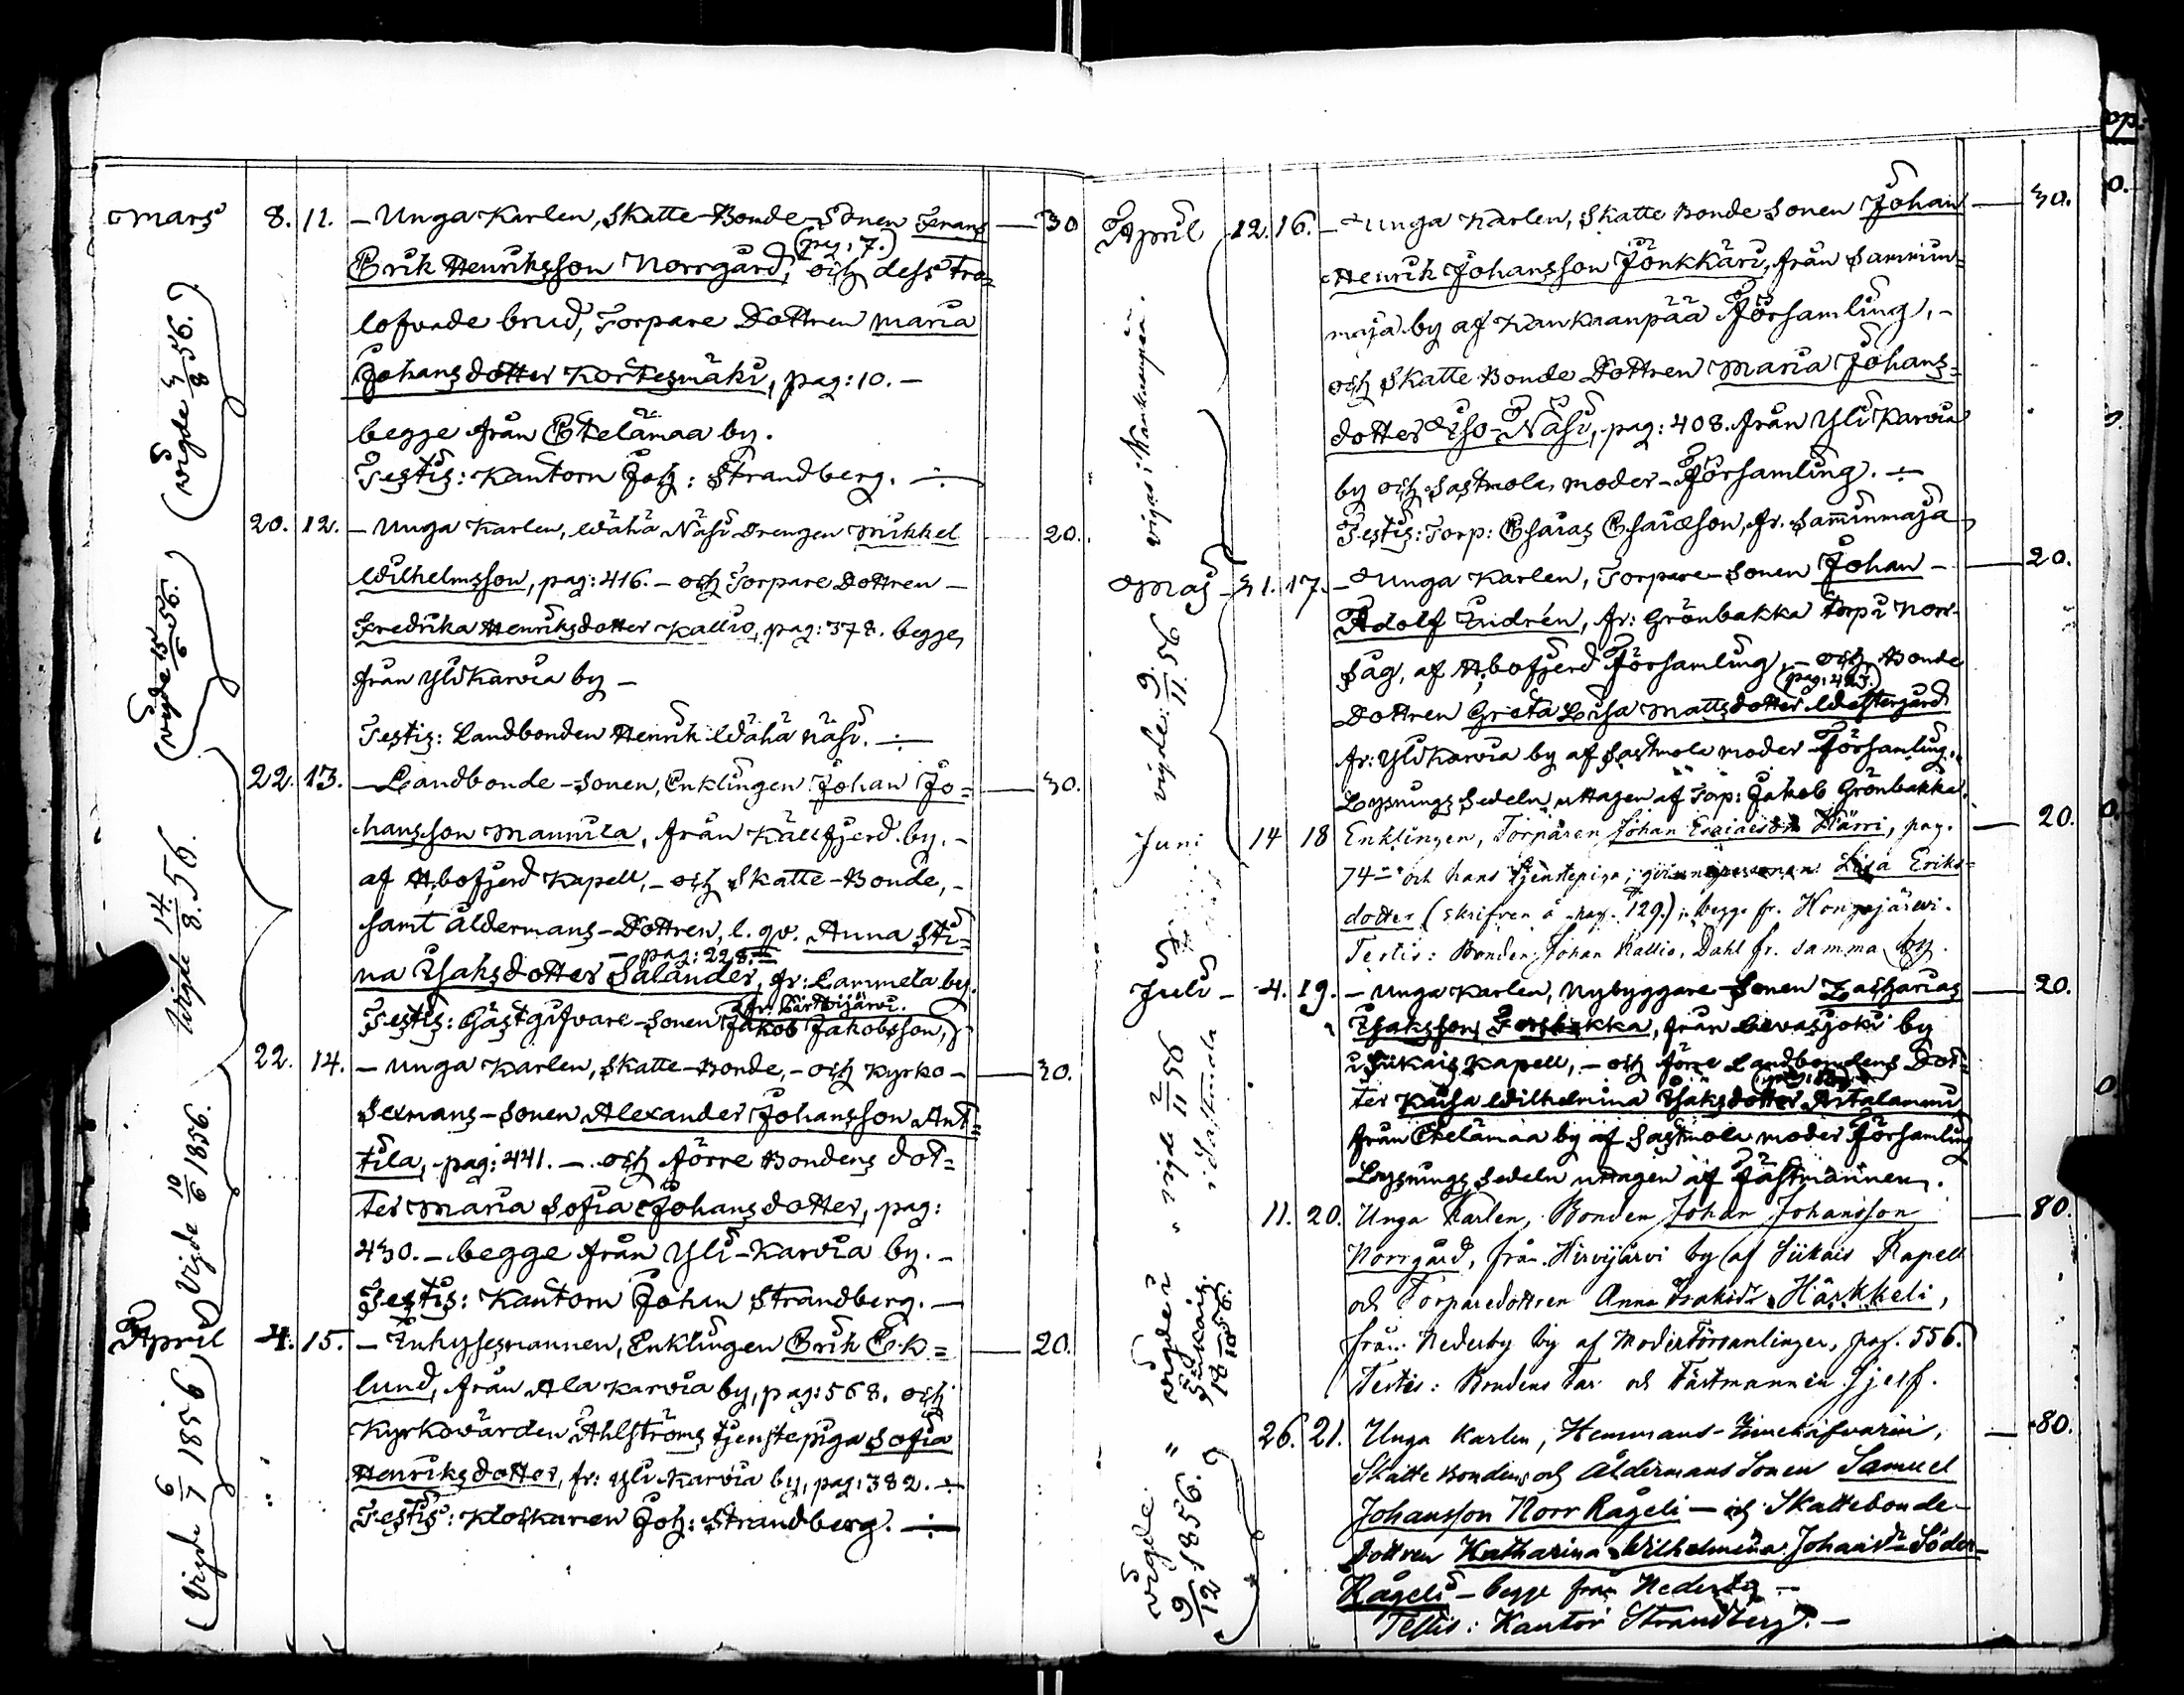 Mars 8. 11. – Unga Karlen, Skatte-Bonde-Sonen Frans — 30
Erik Henriksson Norrgård, (pag: 7.) och dess tro=
lofvade brud, Torpare Dottren Maria
Johansdotter Kortesmäki, pag: 10. –
begge från Etelämaa by.
Testis: Kantorn Joh: Strandberg. ÷
(vigde 3/8 56.)
20. 12. – Unga Karlen, Wähä Näsi Drengen Mikkel — 20.
Wilhelmsson, pag: 416. – och Torpare Dottren –
Fredrika Henriksdotter Kallio, pag: 378. begge,
från Yli Karvia by –
Testis: Landbonden Henrik Wähä Näsi. ÷
(vigde 15/6 56.)
22. 13. – Landbonde-Sonen, Enklingen Johan Jo= — 30.
hansson Mannila, från Källfjerd by. –
af Åbofjerd Kapell, – och Skatte-Bonde, –
samt åldermans-Dottren, l. qv. Anna Sti=
– pag: 228. –
na Isaksdotter Salander, fr: Lammela by.
fr. Lärtvijärvi.
Testis: Gästgifvare-Sonen Jakob Jakobsson,
Vigde 14/8. 56.
22. 14. – Unga Karlen, Skatte-Bonde, – och Kyrko – — 20.
Sexmans-Sonen Alexander Johansson Ant=
tila, pag: 441. – och förre Bondens dot=
ter Maria Sofia Johansdotter, pag:
430. – begge från Yli-Karvia by. –
Testis: Kantorn Johan Strandberg. –
Vigde 10/6 1856.
April 4. 15. – Inhysesmannen, Enklingen Erik Ek= — 20.
lund, från Ala Karvia by, pag: 568. och
Kyrkovärden Ahlströms tjenstepiga Sofia
Henriksdotter, fr: Yli Karvia by, pag: 382. ÷
Testis: Klockaren Joh: Strandberg. ÷
(Vigde 6/7 1856)
April 12. 16. – Unga Karlen, Skatte Bonde Sonen Johan — 30.
Henrik Johansson Jönkkäri, från Sammin=
maja by af Kankaanpää Församling, –
och Skatte Bonde Dottren Maria Johans=
dotter Iso-Näsi, pag: 408. från Yli Karvia
by och Sastmola moder-Församling. ÷
Testis: Torp: Esaias Esaiæson, fr. Samminmaja
vigas i Kankaanpää.
Maj 31. 17. – Unga Karlen, Torpare-Sonen Johan – — 20.
Adolf Lindrén, fr: Grönbakka torp i Norr-
såg, af Åbofjerd Församling, – och Bonde
(pag: 423.)
Dottren Greta Lisa Mattsdotter Westergård
fr: Yli Karvia by af Sastmola moder Församling.
Lysnings Sedeln uttagen af Torp: Jakob Grönbakka.
vigde: 9./11. 56
Juni 14 18 Enklingen, Torparen Johan Esaiaeson Härri, pag. — 20.
74 och hans tjenstepiga, Lisa Eriks=
dotter (skrifven å pag. 129.); begge fr. Hongojärwi.
Testis: Bonden Johan Kallio, Dahl fr. samma by.
Juli – 4. 19. – Unga Karlen, Nybyggare-Sonen Zacharias — 20.
Isaksson Forsbakka, från Lewasjoki by
i Siikais Kapell, – och förre Landbondens Dot=
ter Kaisa Wilhelmina Isaksdotter Antalammi
från Etelämaa by af Sastmola moder Församling
Lysnings Sedeln uttagen af Fästmannen.
" vigde 2/11 56
i Sastmola
11. 20. Unga Karlen, Bonden Johan Johansson — 80.
Norrgård, från Hirvijärvi by af Siikais Kapell
och Torparedottren Anna Isaksdr Härkkeli,
från Nederby by af Moderförsamlingen, pag. 556.
Testis: Bondens Far och Fästmannen Sjelf.
" vigde i
Siikais.
18/10 56.
26. 21. Unga Karlen, Hemmans-Innehafvaren, — 80.
Skatte Bondens och Åldermans Sonen Samuel
Johansson Norr Rågeli – och Skattebonde-
Dottren Katharina Wilhelmina Johansdr Söder-
Rågeli – begge från Nederby –
Testis: Kantor Strandberg. –
vigde: "
9/12 1856.